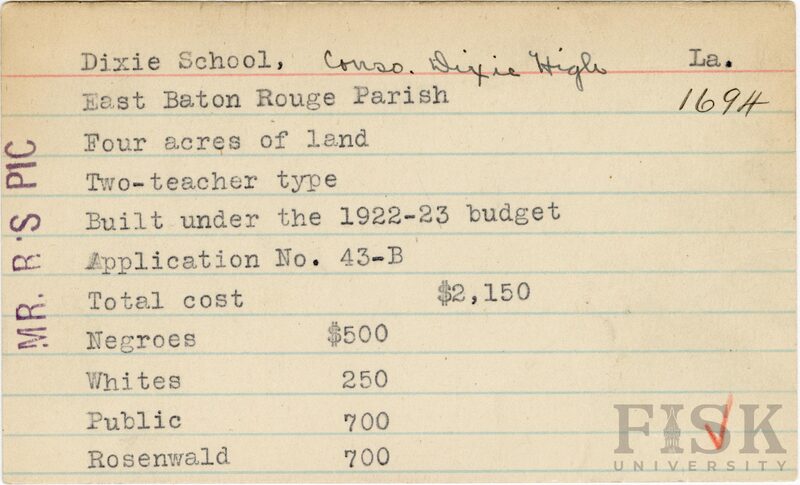 Dixie School, Conso. Dixie High La.
East Baton Rouge Parish 1694
Four acres of land
Two-teacher type
Built under the 1922-23 budget
Application No. 43-B
Total cost $2,150
Negroes $500
Whites 250
Public 700
Rosenwald 700
MR. R'S PIC
FISK
UNIVERSITY